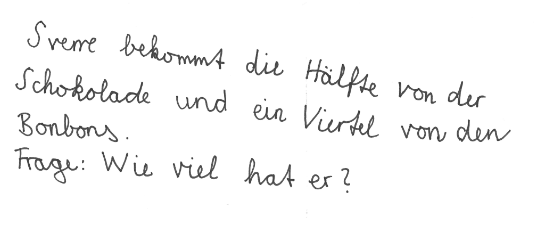 Sverre bekommt die Hälfte von der
Schokolade und ein Viertel von den
Bonbons.
Frage: Wie viel hat er?